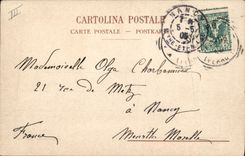 III
CARTOLINA POSTALE
CARTE POSTALE - POSTKARTE
NANCY
Mademoiselle Olga Charbonnier
21 rue de Metz
à Nancy
France
Meurthe Moselle